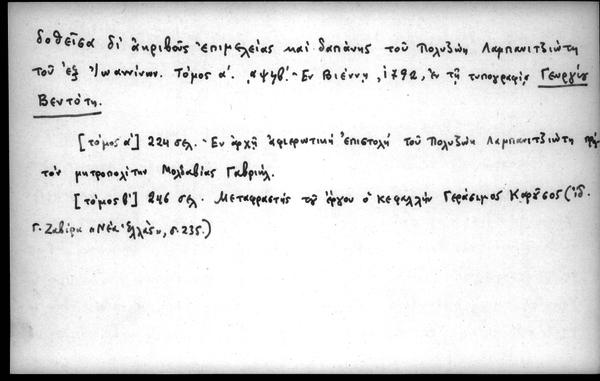 δοθεῖσα δι' ἀκριβοῦς ἐπιμελείας καὶ δαπάνης τοῦ Πολυζώη Λαμπανιτζιώτη
τοῦ ἐξ Ἰωαννίνων. Τόμος α'. ͵αψϟβ'. - Ἐν Βιέννῃ, 1792, ἐν τῇ τυπογραφίᾳ Γεωργίου
Βεντότη.
[τόμος α'] 224 σελ. - Ἐν ἀρχῇ ἀφιερωτικὴ ἐπιστολὴ τοῦ Πολυζώη Λαμπανιτζιώτη πρὸς
τὸν μητροπολίτην Μολδαβίας Γαβριήλ.
[τόμος β'] 246 σελ. Μεταφραστὴς τοῦ ἔργου ὁ κεφαλλὴν Γεράσιμος Καροῦσος (ἰδ.
Γ. Ζαβίρα «Νέα Ἑλλὰς», σ. 235.)